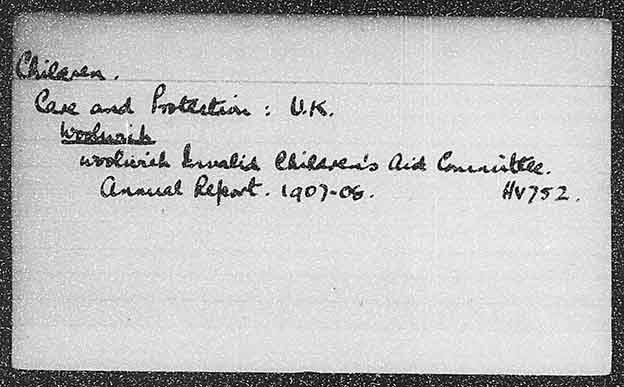 Children.
Care and Protection: U.K.
Woolwich
Woolwich Invalid Children's Aid Committee.
Annual Report. 1907-08. HV752.